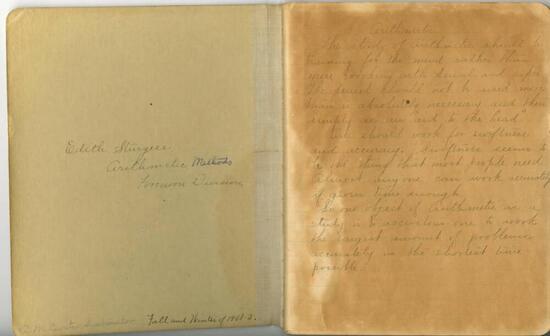 Edith Sturgess
Arithmetic Methods
Division
Fall and Winter of 1901-2.
Arithmetic
The study of arithmetic should be
training for the mind rather than
mere working with pencil and paper
The pencil should not be used more
than is absolutely necessary and then
simply as an aid to the head
One should work for swiftness
and accuracy. Swiftness seems to
be the thing that most people need
Almost anyone can work accurately
if given time enough
one object of arithmetic as a
study is to accustom one to work
the largest amount of problems
accurately in the shortest time
possible.